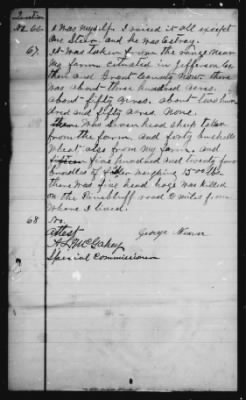 Question
66. I was myself. I raised it all except
one Steer and he was estray.
67. It was taken from the range near
my farm situated in Jefferson Co
then and Grant County now. there
was about three hundred acres.
about fifty acres. about two hun
dred and fifty acres. None.
There was seven head sheep taken
from the farm, and forty bushells
wheat also from my farm, and
five hundred and twenty four
bundles of fodder weighing 1500 lbs
there was five head hogs was killed
on the Pine bluff road 2 miles from
where I lived.
68 No.
Attest George Nunn
Special Commissioner